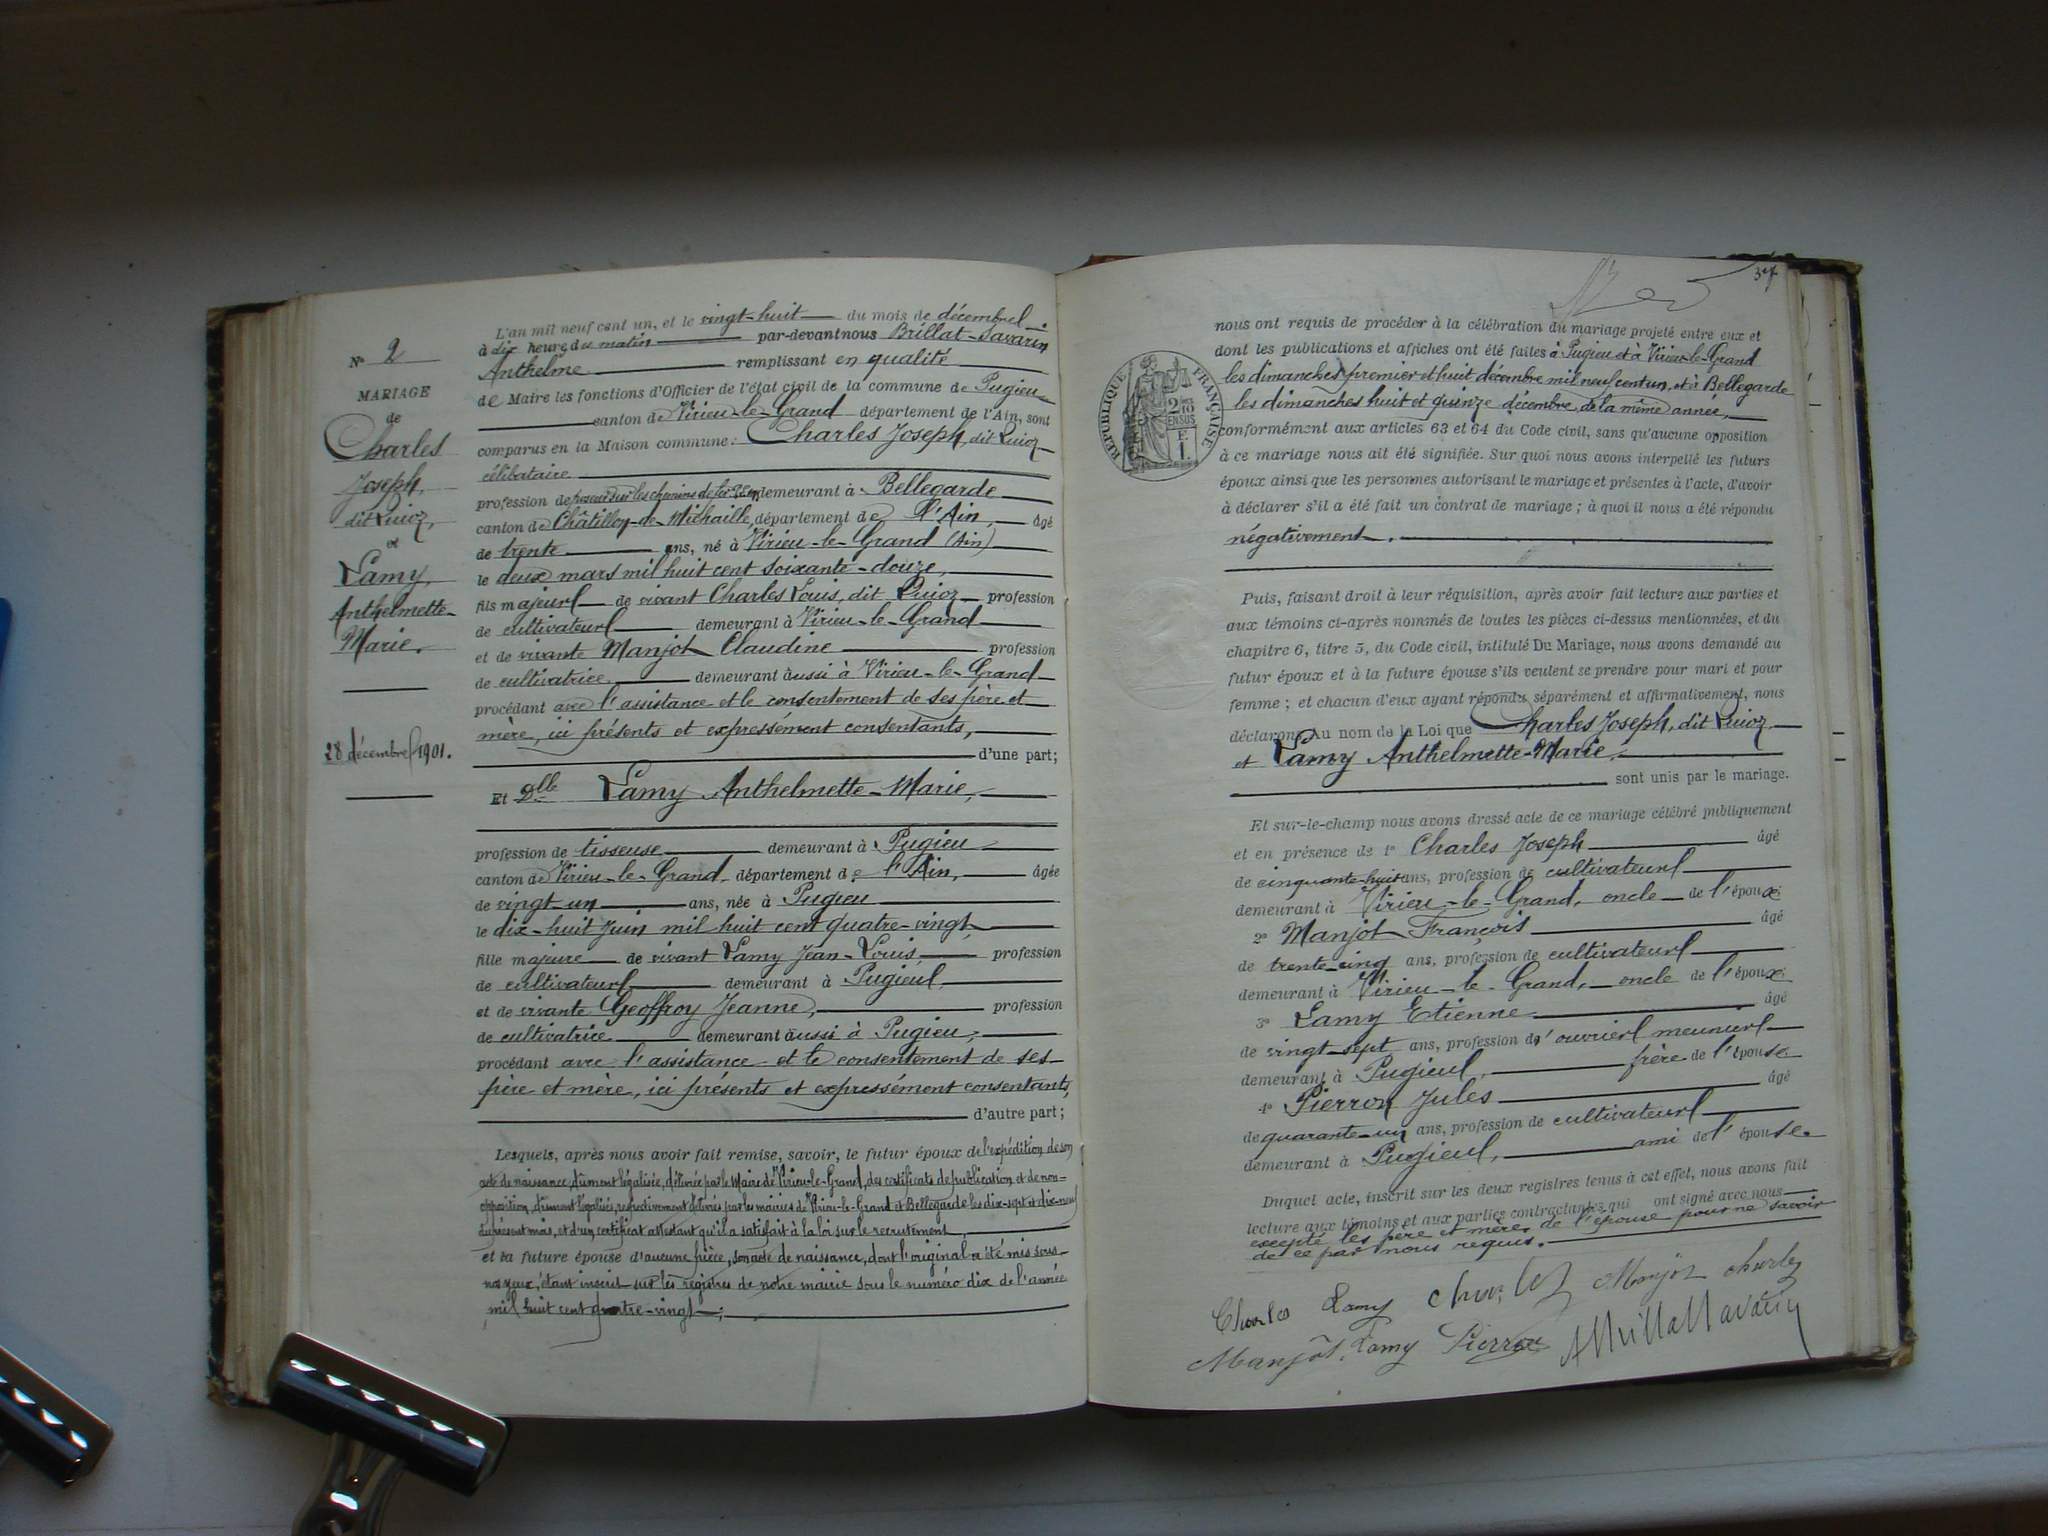 N° 2
MARIAGE
de
Charles
Joseph,
dit Quioz,
et
Lamy,
Anthelmette-
Marie.
28 décembre 1901.
L'an mil neuf cent un, et le vingt-huit du mois de décembre
à dix heures du matin par-devant nous Brillat-Savarin
Anthelme remplissant en qualité
de Maire les fonctions d'Officier de l'état civil de la commune de Pugieu
canton de Virieu-le-Grand département de l'Ain, sont
comparus en la Maison commune: Charles Joseph, dit Quioz
célibataire
profession de poseur sur les chemins de fer demeurant à Bellegarde
canton de Châtillon-de-Michaille, département de l'Ain, âgé
de trente ans, né à Virieu-le-Grand (Ain)
le deux mars mil huit cent soixante-douze,
fils majeur de vivant Charles Louis, dit Quioz profession
de cultivateur demeurant à Virieu-le-Grand
et de vivante Manjot Claudine profession
de cultivatrice demeurant aussi à Virieu-le-Grand
procédant avec l'assistance et le consentement de ses père et
mère, ici présents et expressément consentants,
d'une part;
Et Dlle Lamy Anthelmette-Marie,
profession de tisseuse demeurant à Pugieu
canton de Virieu-le-Grand département de l'Ain, âgée
de vingt-un ans, née à Pugieu
le dix-huit Juin mil huit cent quatre-vingt,
fille majeure de vivant Lamy Jean-Louis, profession
de cultivateur demeurant à Pugieu,
et de vivante Geoffroy Jeanne, profession
de cultivatrice demeurant aussi à Pugieu,
procédant avec l'assistance et le consentement de ses
père et mère, ici présents et expressément consentants,
d'autre part;
Lesquels, après nous avoir fait remise, savoir, le futur époux de l'expédition de son
acte de naissance, dûment légalisée, délivrée par le Maire de Virieu-le-Grand, des certificats de publication et de non-
opposition, dûment légalisés, respectivement délivrés par les mairies de Virieu-le-Grand et Bellegarde les dix-sept et dix-neuf
du présent mois, et d'un certificat attestant qu'il a satisfait à la loi sur le recrutement,
et la future épouse d'aucune pièce, son acte de naissance, dont l'original a été mis sous
nos yeux, étant inscrit sur les registres de notre mairie sous le numéro dix de l'année
mil huit cent quatre-vingt;
37
RÉPUBLIQUE FRANÇAISE
nous ont requis de procéder à la célébration du mariage projeté entre eux et
dont les publications et affiches ont été faites à Pugieu et à Virieu-le-Grand
les dimanches premier et huit décembre mil neuf cent un, et à Bellegarde
les dimanches huit et quinze décembre de la même année,
conformément aux articles 63 et 64 du Code civil, sans qu'aucune opposition
à ce mariage nous ait été signifiée. Sur quoi nous avons interpellé les futurs
époux ainsi que les personnes autorisant le mariage et présentes à l'acte, d'avoir
à déclarer s'il a été fait un contrat de mariage; à quoi il nous a été répondu
négativement.
Puis, faisant droit à leur réquisition, après avoir fait lecture aux parties et
aux témoins ci-après nommés de toutes les pièces ci-dessus mentionnées, et du
chapitre 6, titre 5, du Code civil, intitulé Du Mariage, nous avons demandé au
futur époux et à la future épouse s'ils veulent se prendre pour mari et pour
femme; et chacun d'eux ayant répondu séparément et affirmativement, nous
déclarons Au nom de la Loi que Charles Joseph, dit Quioz
et Lamy Anthelmette-Marie,
sont unis par le mariage.
Et sur-le-champ nous avons dressé acte de ce mariage célébré publiquement
et en présence de 1° Charles Joseph âgé
de cinquante-huit ans, profession de cultivateur
demeurant à Virieu-le-Grand, oncle de l'époux
2° Manjot François âgé
de trente-cinq ans, profession de cultivateur
demeurant à Virieu-le-Grand, oncle de l'époux
3° Lamy Etienne âgé
de vingt-sept ans, profession d'ouvrier meunier
demeurant à Pugieu, frère de l'épouse
4° Pierron Jules âgé
de quarante-un ans, profession de cultivateur
demeurant à Pugieu, ami de l'épouse.
Duquel acte, inscrit sur les deux registres tenus à cet effet, nous avons fait
lecture aux témoins et aux parties contractantes qui ont signé avec nous
excepté les père et mère de l'épouse pour ne savoir
de ce par nous requis.
Charles Lamy Charles Manjot Charles
Manjot, Lamy Pierron ABrillatSavarin